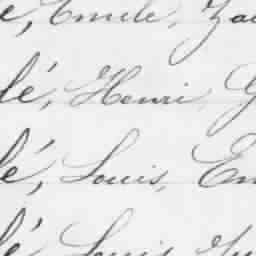 é, Emile, Za
lé, Henri, G
lé, Louis, Em
lé, Louis, Ju